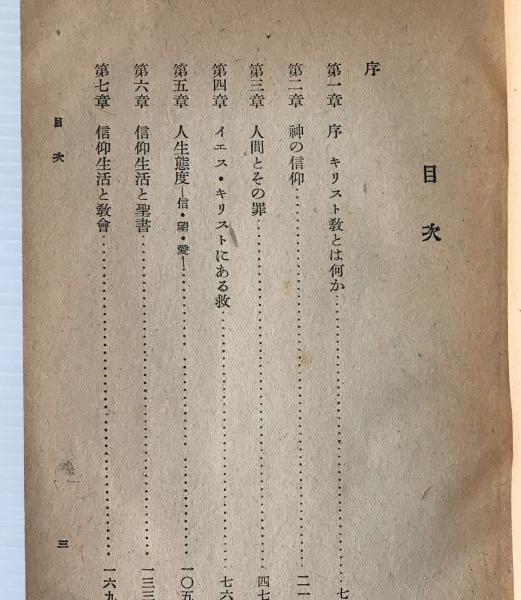 目次
序
第一章 序 キリスト教とは何か……七
第二章 神の信仰……二一
第三章 人間とその罪……四七
第四章 イエス・キリストにある救……七六
第五章 人生態度―信・望・愛―……一〇五
第六章 信仰生活と聖書……一三三
第七章 信仰生活と教會……一六九
目次
三